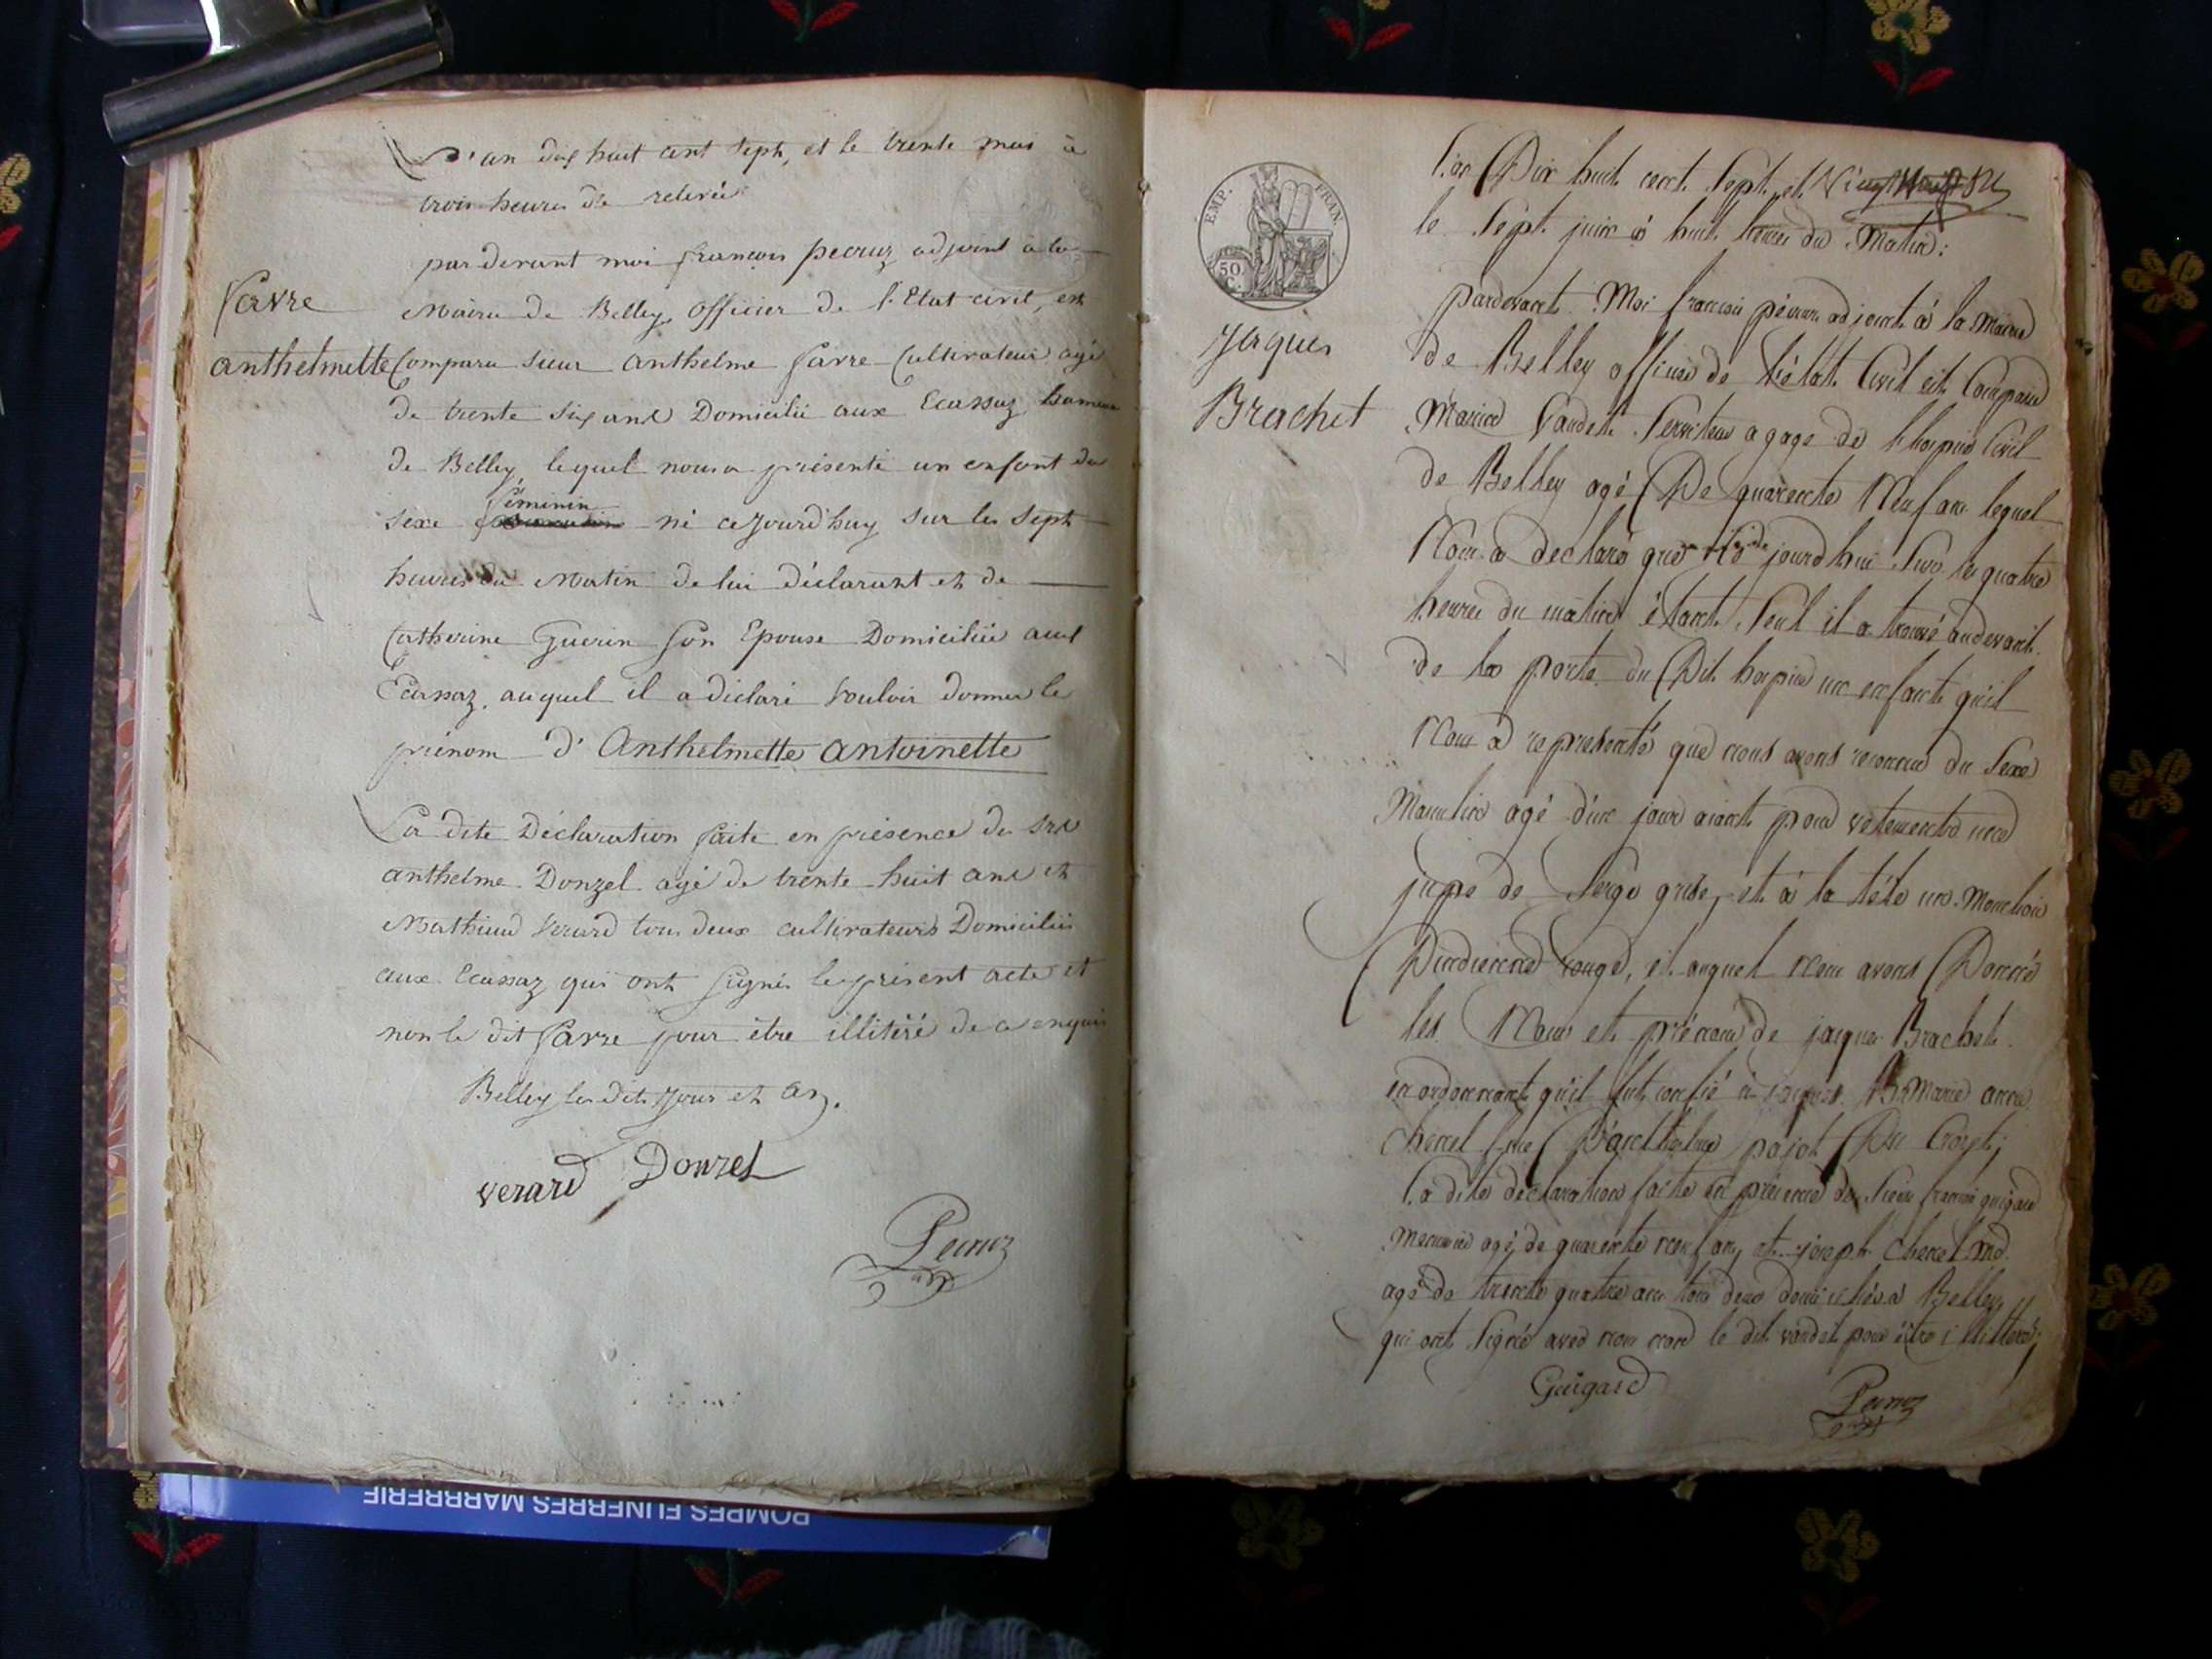 L'an dix huit cent sept, et le trente mai à
trois heures de relevée
par devant moi françois pecruz adjoint à la
Mairie de Belley officier de l'Etat civil, est
favre
anthelmette
Comparu sieur anthelme favre Cultivateur agé
de trente six ans Domicilié aux Ecassaz hameau
de Belley lequel nous a présenté un enfant du
sexe féminin né ce jourd'huy sur les sept
heures du Matin de lui déclarant et de
Catherine Guerin son Epouse Domiciliée aux
Ecassaz, auquel il a déclaré vouloir donner le
prénom d'Anthelmette antoinette
La dite Déclaration faite en présence de Srs
anthelme Donzel agé de trente huit ans et
Mathieu Verard tous deux cultivateurs Domiciliés
aux Ecassaz qui ont signés le présent acte et
non le dit favre pour être illitéré de ce enquis
Belley les dits jour et an.
verard Donzel
Pecruz
EMP. FRAN.
50 C.
Jaques
Brachet
L'an Dix huit cent sept et
le sept juin à huit heures du Matin:
pardevant Moi francois pécruz adjoint à la Mairie
de Belley officier de l'état Civil est Comparu
Vaudet serviteur a gage de l'hospice Civil
de Belley agé De quarente Neuf ans lequel
Nous a declaré que jourd'hui sur les quatre
heures du matin étant seul il a trouvé audevant
de la porte du Dit hospice un enfant qu'il
Nous a représenté que nous avons reconnu du sexe
Masculin agé d'un jour aiant pour vetements une
jupe de serge grise, et à la tête un Mouchoir
D'indienne rouge, et auquel Nous avons Donné
les Nom et prénom de jaques Brachet
en ordonnant qu'il fut confié à Marie anne
chenel fme D'anthelme pajot
La dite déclaration faite en présence de sieur francois guigard
Menuisier agé de quarente neuf ans et joseph chenel Md
agé de trente quatre ans tous deux domiciliés à Belley
qui ont signé avec nous non le dit vaudet pour être illitteré;
Guigard
Pecruz
POMPES FUNEBRES MARBRERIE